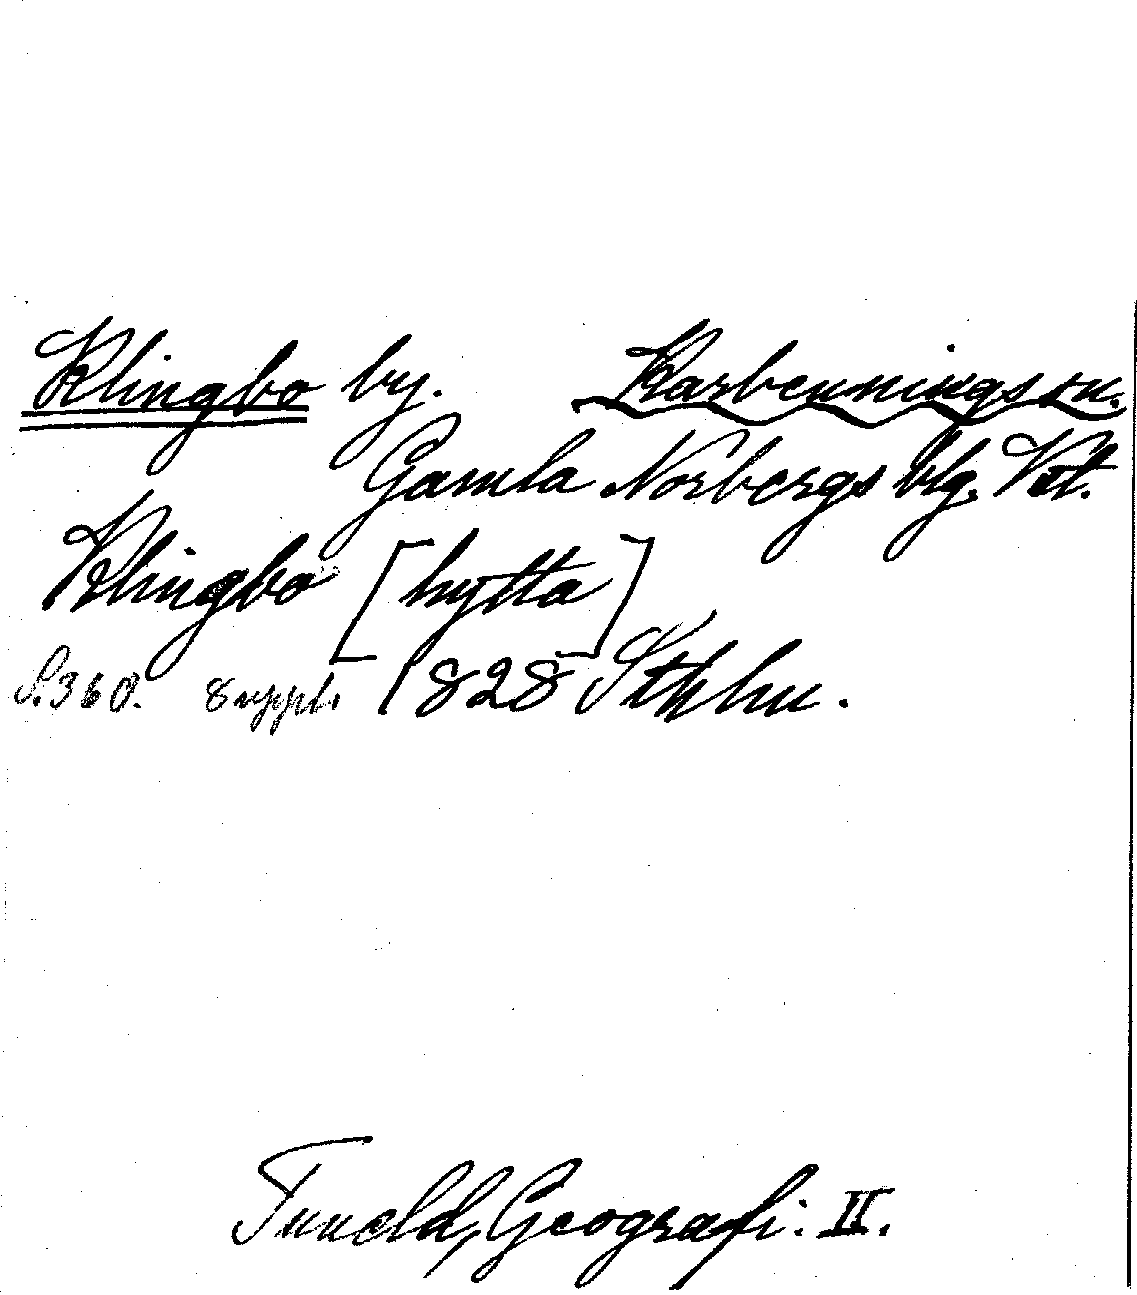 Klingbo by. Karbennings sn.
Gamla Norbergs blg. Vstm.
Klingbo [hytta]
S. 360. 8 uppl. 1828 Sthlm.
Tuneld, Geografi. II.